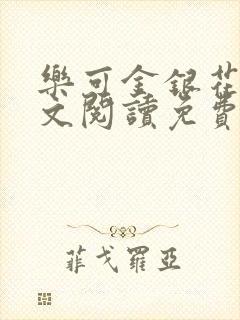 樂可金銀花
文閱讀免費
菲戈羅亞